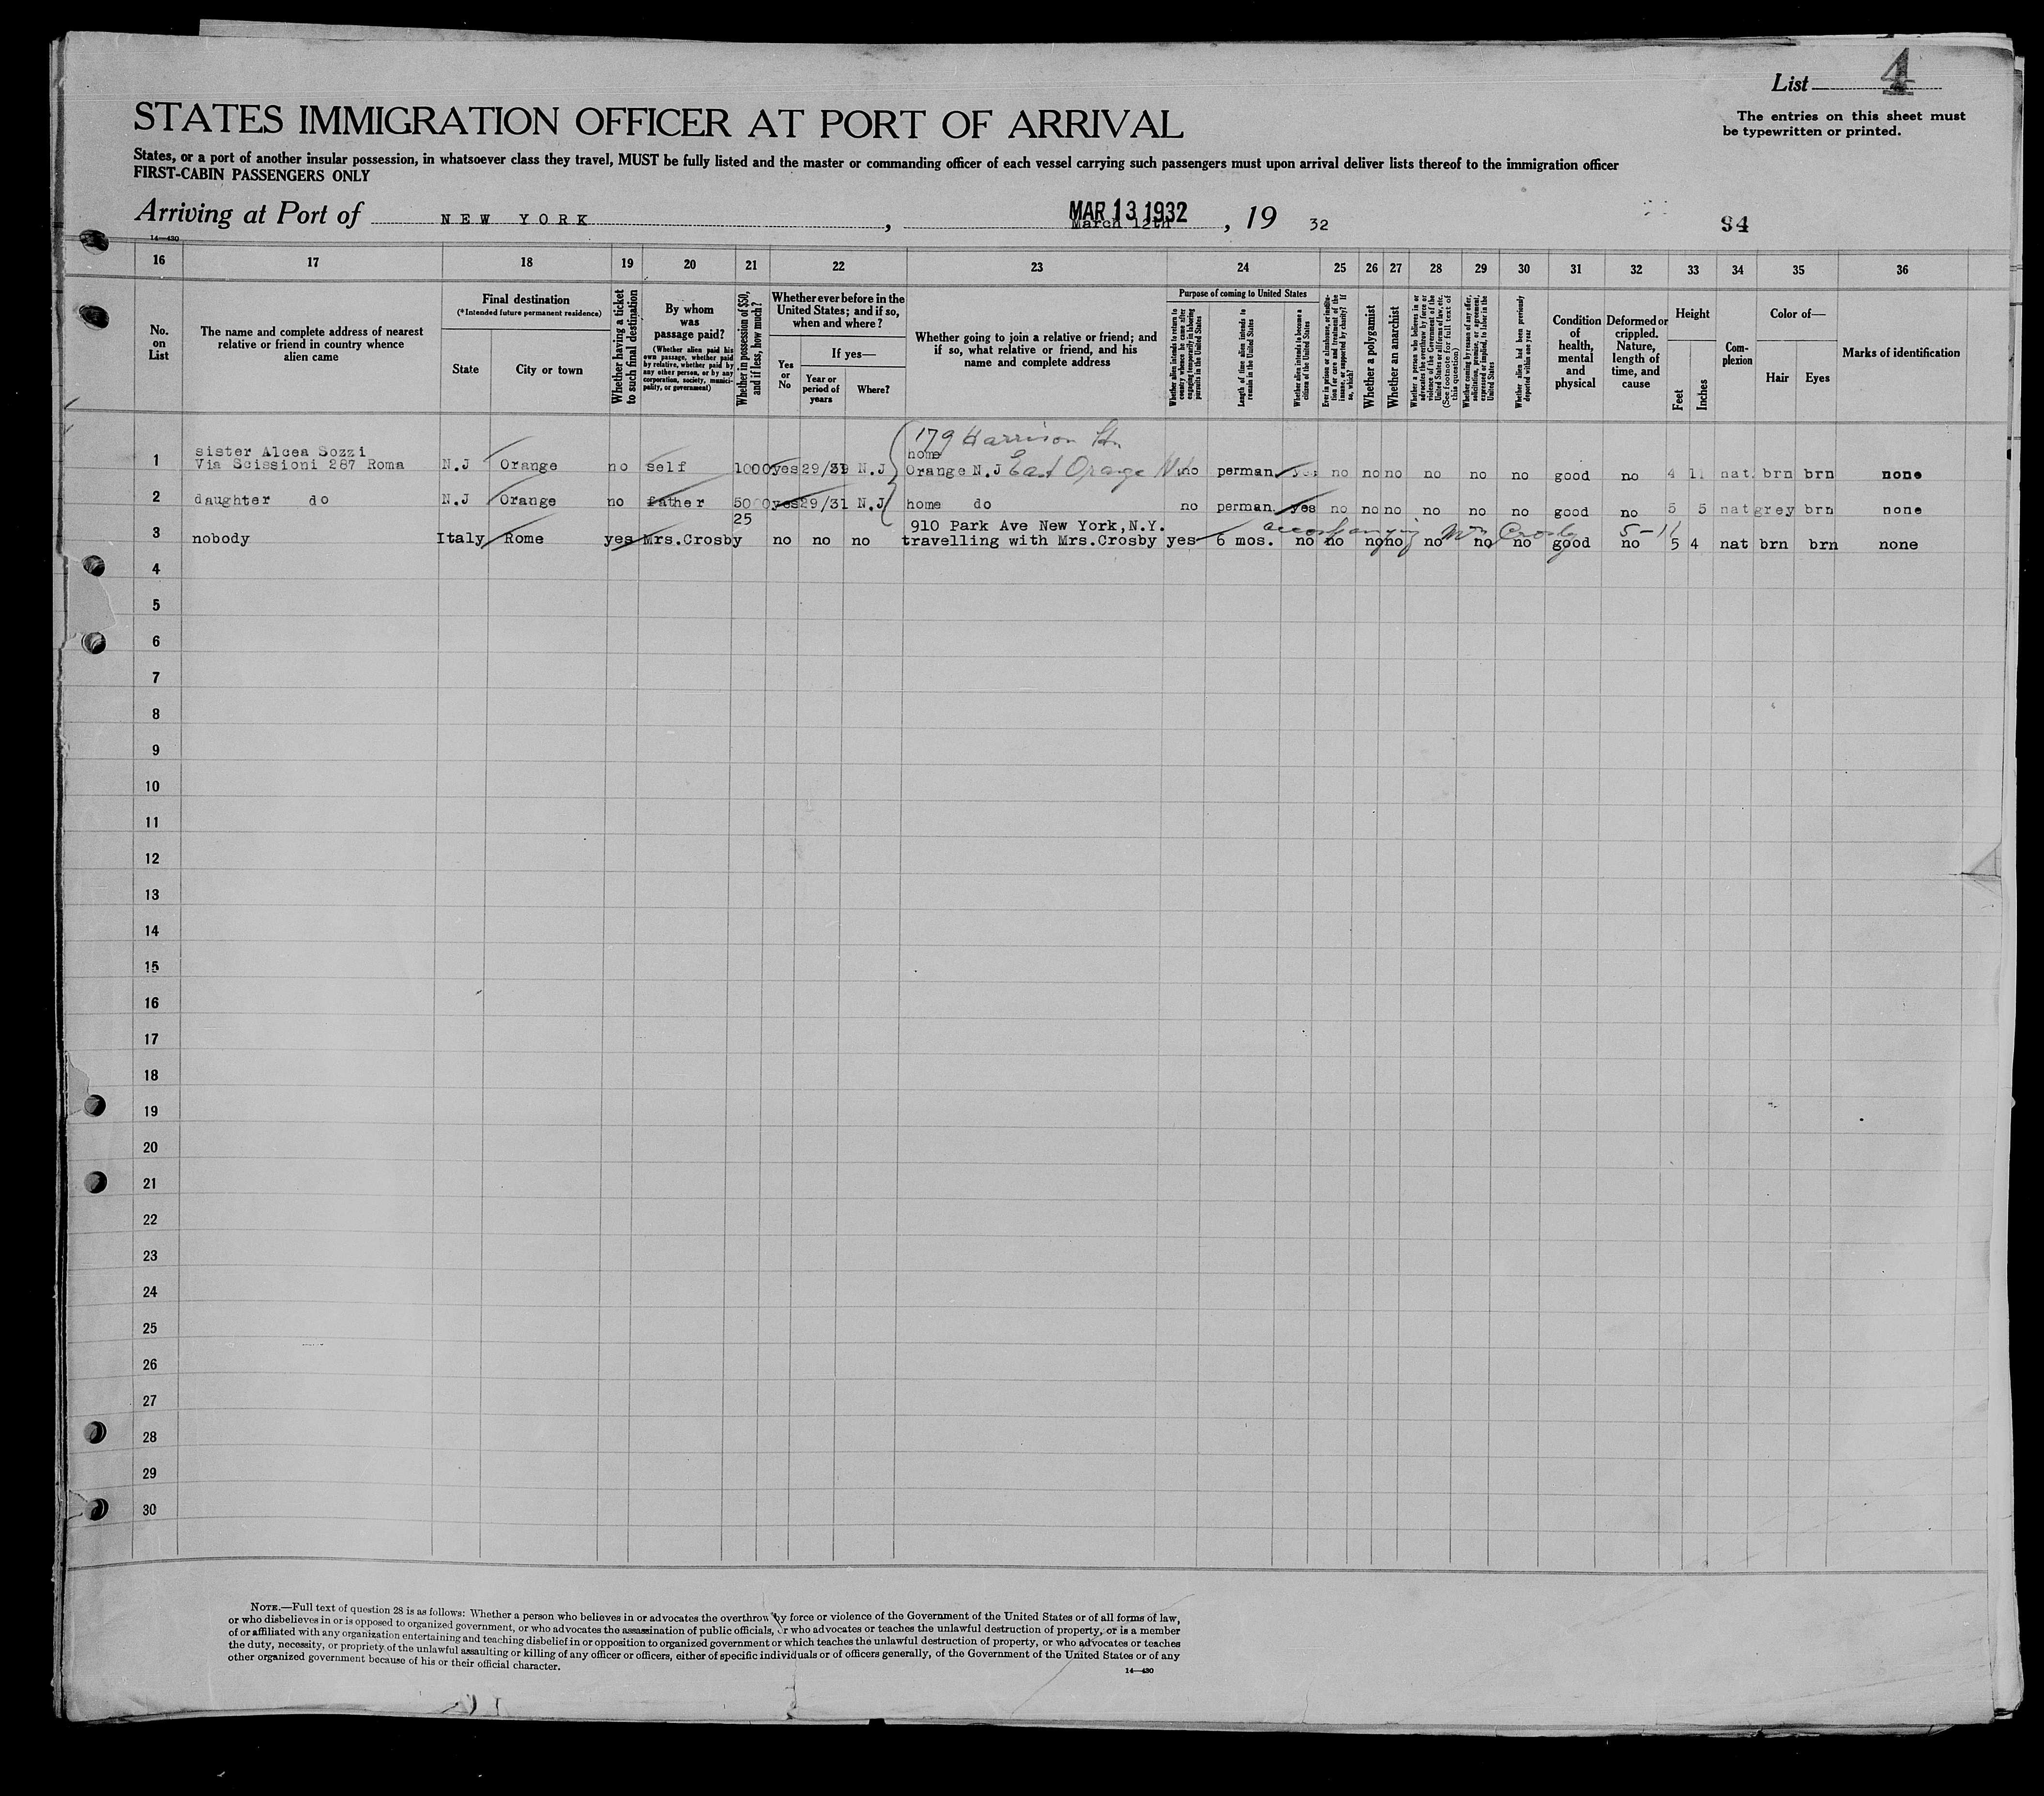 List 4
The entries on this sheet must
be typewritten or printed.
STATES IMMIGRATION OFFICER AT PORT OF ARRIVAL
States, or a port of another insular possession, in whatsoever class they travel, MUST be fully listed and the master or commanding officer of each vessel carrying such passengers must upon arrival deliver lists thereof to the immigration officer
FIRST-CABIN PASSENGERS ONLY
Arriving at Port of NEW YORK, MAR 13 1932 March 12th, 19 32
94
14—430
16 17 18 19 20 21 22 23 24 25 26 27 28 29 30 31 32 33 34 35 36
No.
on
List
The name and complete address of nearest
relative or friend in country whence
alien came
Final destination
(*Intended future permanent residence)
State
City or town
Whether having a ticket
to such final destination
By whom
was
passage paid?
(Whether alien paid his
own passage, whether paid
by relative, whether paid by
any other person, or by any
corporation, society, munici-
pality, or government)
Whether in possession of $50,
and if less, how much?
Whether ever before in the
United States; and if so,
when and where?
Yes
or
No
If yes—
Year or
period of
years
Where?
Whether going to join a relative or friend; and
if so, what relative or friend, and his
name and complete address
Purpose of coming to United States
Whether alien intends to return to
country whence he came after
engaging temporarily in laboring
pursuits in the United States
Length of time alien intends to
remain in the United States
Whether alien intends to become a
citizen of the United States
Ever in prison or almshouse, or institu-
tion for care and treatment of the
insane, or supported by charity? If
so, which?
Whether a polygamist
Whether an anarchist
Whether a person who believes in or
advocates the overthrow by force or
violence of the Government of the
United States or all forms of law, etc.
(See footnote for full text of
this question)
Whether coming by reason of any offer,
solicitation, promise, or agreement,
expressed or implied, to labor in the
United States
Whether alien had been previously
deported within one year
Condition
of
health,
mental
and
physical
Deformed or
crippled.
Nature,
length of
time, and
cause
Height
Feet
Inches
Com-
plexion
Color of—
Hair
Eyes
Marks of identification
179 Harrison St.
sister Alcea Sozzi
home
1 Via Scissioni 287 Roma N.J Orange no self 1000 yes 29/31 N.J Orange N.J East Orange N.J no perman. yes no no no no no no good no 4 11 nat. brn brn none
2 daughter do N.J Orange no father 5000 yes 29/31 N.J home do no perman. yes no no no no no no good no 5 5 nat grey brn none
25 910 Park Ave New York,N.Y. accompanying Mrs Crosby 5-1½
3 nobody Italy Rome yes Mrs.Crosby no no no travelling with Mrs.Crosby yes 6 mos. no no no no no no no good no 5 4 nat brn brn none
4
5
6
7
8
9
10
11
12
13
14
15
16
17
18
19
20
21
22
23
24
25
26
27
28
29
30
NOTE.—Full text of question 28 is as follows: Whether a person who believes in or advocates the overthrow by force or violence of the Government of the United States or of all forms of law,
or who disbelieves in or is opposed to organized government, or who advocates the assassination of public officials, or who advocates or teaches the unlawful destruction of property, or is a member
of or affiliated with any organization entertaining and teaching disbelief in or opposition to organized government or which teaches the unlawful destruction of property, or who advocates or teaches
the duty, necessity, or propriety of the unlawful assaulting or killing of any officer or officers, either of specific individuals or of officers generally, of the Government of the United States or of any
other organized government because of his or their official character.
14—430